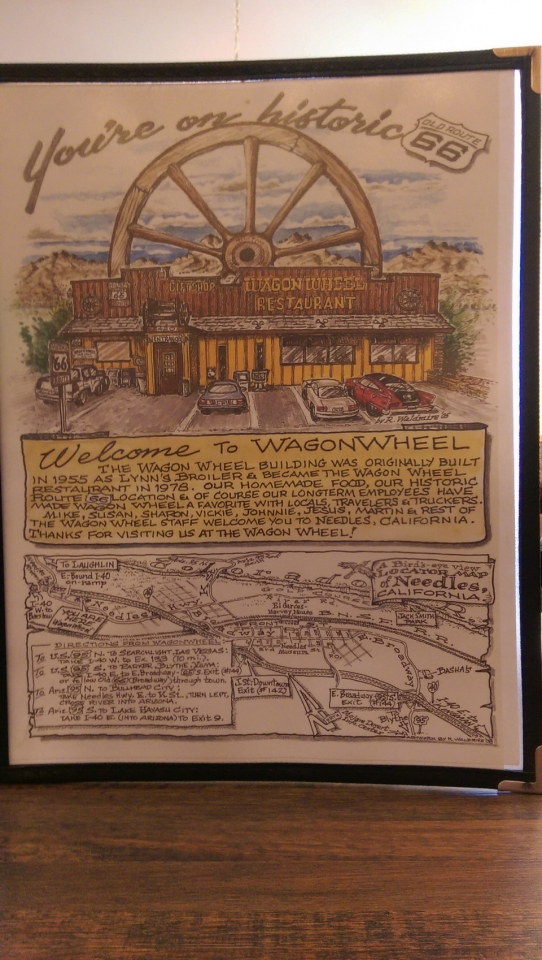 You're on historic
OLD ROUTE
66
GIFT SHOP
WAGON WHEEL
RESTAURANT
66
by R. Waldmire '05
Welcome To WAGONWHEEL
THE WAGON WHEEL BUILDING WAS ORIGINALLY BUILT
IN 1955 AS LYNN'S BROILER & BECAME THE WAGON WHEEL
RESTAURANT IN 1978. OUR HOMEMADE FOOD, OUR HISTORIC
ROUTE 66 LOCATION & OF COURSE OUR LONGTERM EMPLOYEES HAVE
MADE WAGON WHEEL A FAVORITE WITH LOCALS, TRAVELERS & TRUCKERS.
MIKE, SUSAN, SHARON, VICKIE, JOHNNIE, JESUS, MARTIN & REST OF
THE WAGON WHEEL STAFF WELCOME YOU TO NEEDLES, CALIFORNIA.
THANKS FOR VISITING US AT THE WAGON WHEEL!
A Bird's-eye View
LOCATOR MAP
of Needles,
CALIFORNIA
TO LAUGHLIN
E-Bound I-40
on-ramp
I-40
W. to
Barstow
YOU ARE
Needles Hwy.
El Garces
Harvey House
B.N.S.F. R.R.
JACK SMITH
PARK
FRONT
Needles
Museum
E. Broadway
BASHA'S
J. St. Downtown
Exit (#142)
E. Broadway
Exit (#144)
I-40
To
Blythe
DIRECTIONS FROM WAGONWHEEL
To U.S. 95 N. to SEARCHLIGHT, LAS VEGAS:
TAKE I-40 W. to Ex. 133 (10 mi.)
To U.S. 95 S. to PARKER, BLYTHE, YUMA:
TAKE I-40 E. to E. Broadway S. Exit (#144)
or follow Old 66 (Broadway) through town.
To Ariz. 95 N. to BULLHEAD CITY:
TAKE Needles Hwy. E. to K St., TURN LEFT,
CROSS RIVER INTO ARIZONA.
To Ariz. 95 S. to LAKE HAVASU CITY:
TAKE I-40 E. (INTO ARIZONA) TO EXIT 9.
ARTWORK BY R. WALDMIRE